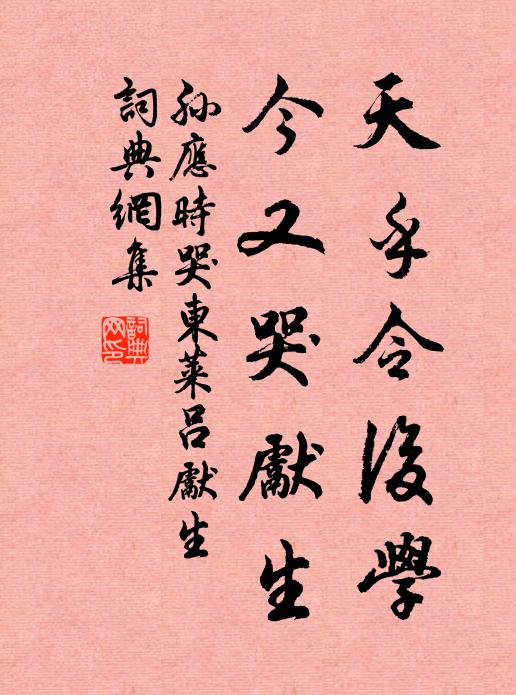 天乎令後學
今又哭獻生
孫應時哭東萊呂獻生
詞典網集
詞典網印